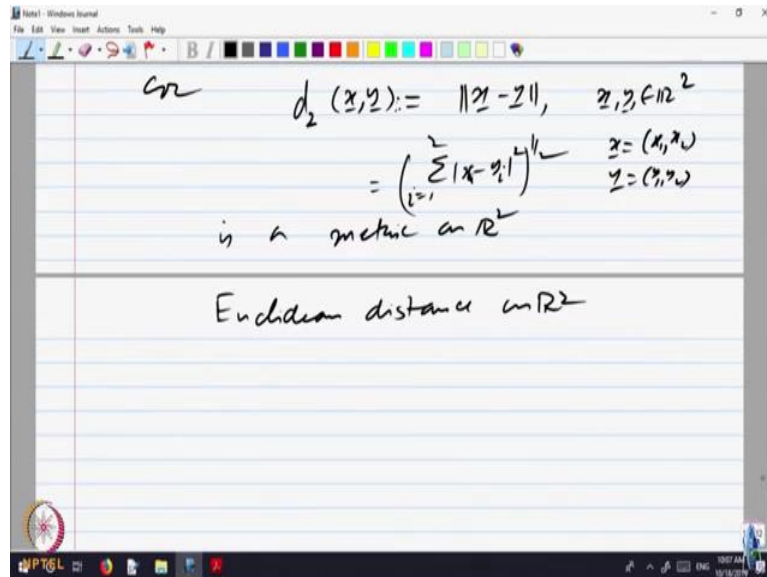 Note1 - Windows Journal
File Edit View Insert Actions Tools Help
Cor d₂ (x,y) := ||x - y||, x,y ∈ ℝ²
= (∑_{i=1}^{2} |x - y_i|²)^{1/2} x = (x₁,x₂)
y = (y₁,y₂)
is a metric on ℝ²
Euclidean distance on ℝ²
NPTEL
ENG
10:07 AM
10/18/2019